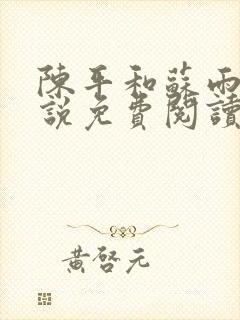 陳平和蘇雨
說免費閱讀
黃啓元